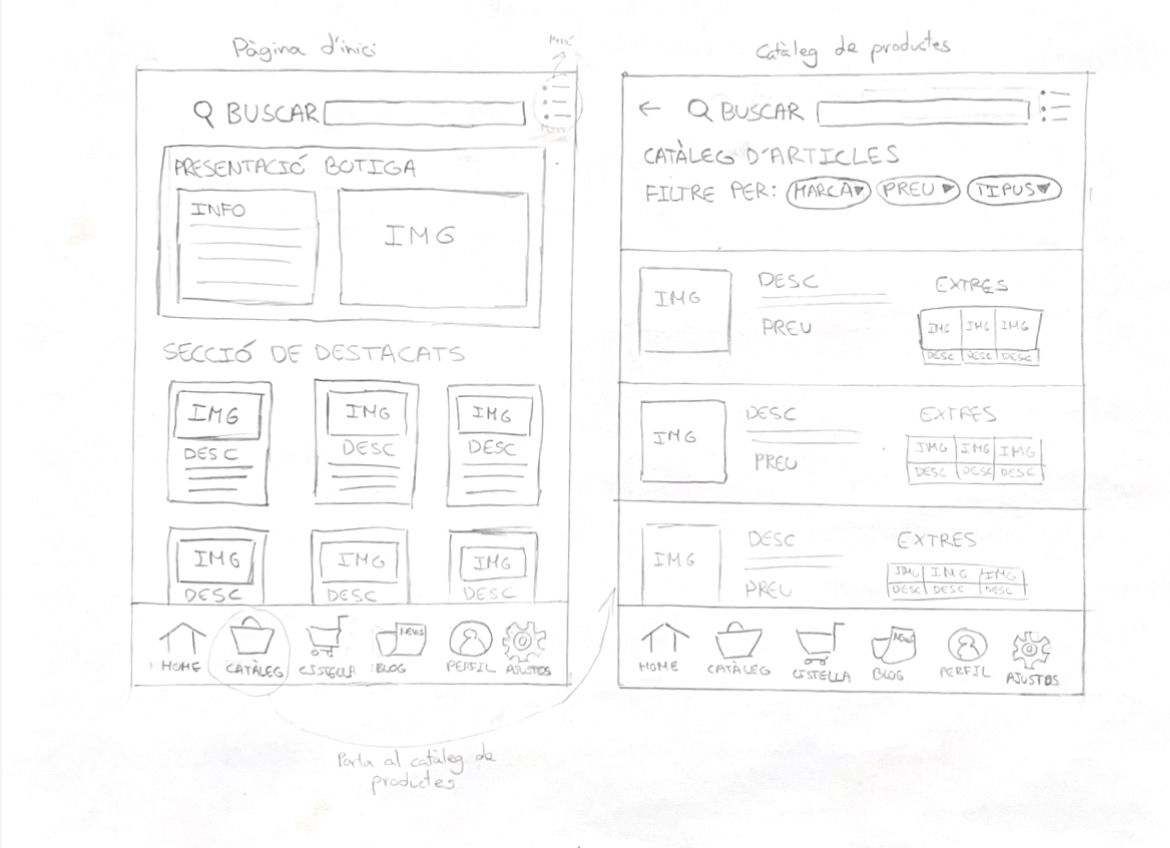 Pàgina d'inici
Menú
BUSCAR
PRESENTACIÓ BOTIGA
INFO
IMG
SECCIÓ DE DESTACATS
IMG IMG IMG
DESC DESC DESC
IMG IMG IMG
DESC DESC DESC
NEWS
HOME CATÀLEG CISTELLA BLOG PERFIL AJUSTOS
Porta al catàleg de
productes
Catàleg de productes
BUSCAR
CATÀLEG D'ARTICLES
FILTRE PER: MARCA PREU TIPUS
IMG
DESC
PREU
EXTRES
IMG IMG IMG
DESC DESC DESC
IMG
DESC
PREU
EXTRES
IMG IMG IMG
DESC DESC DESC
IMG
DESC
PREU
EXTRES
IMG IMG IMG
DESC DESC DESC
NEWS
HOME CATÀLEG CISTELLA BLOG PERFIL AJUSTOS